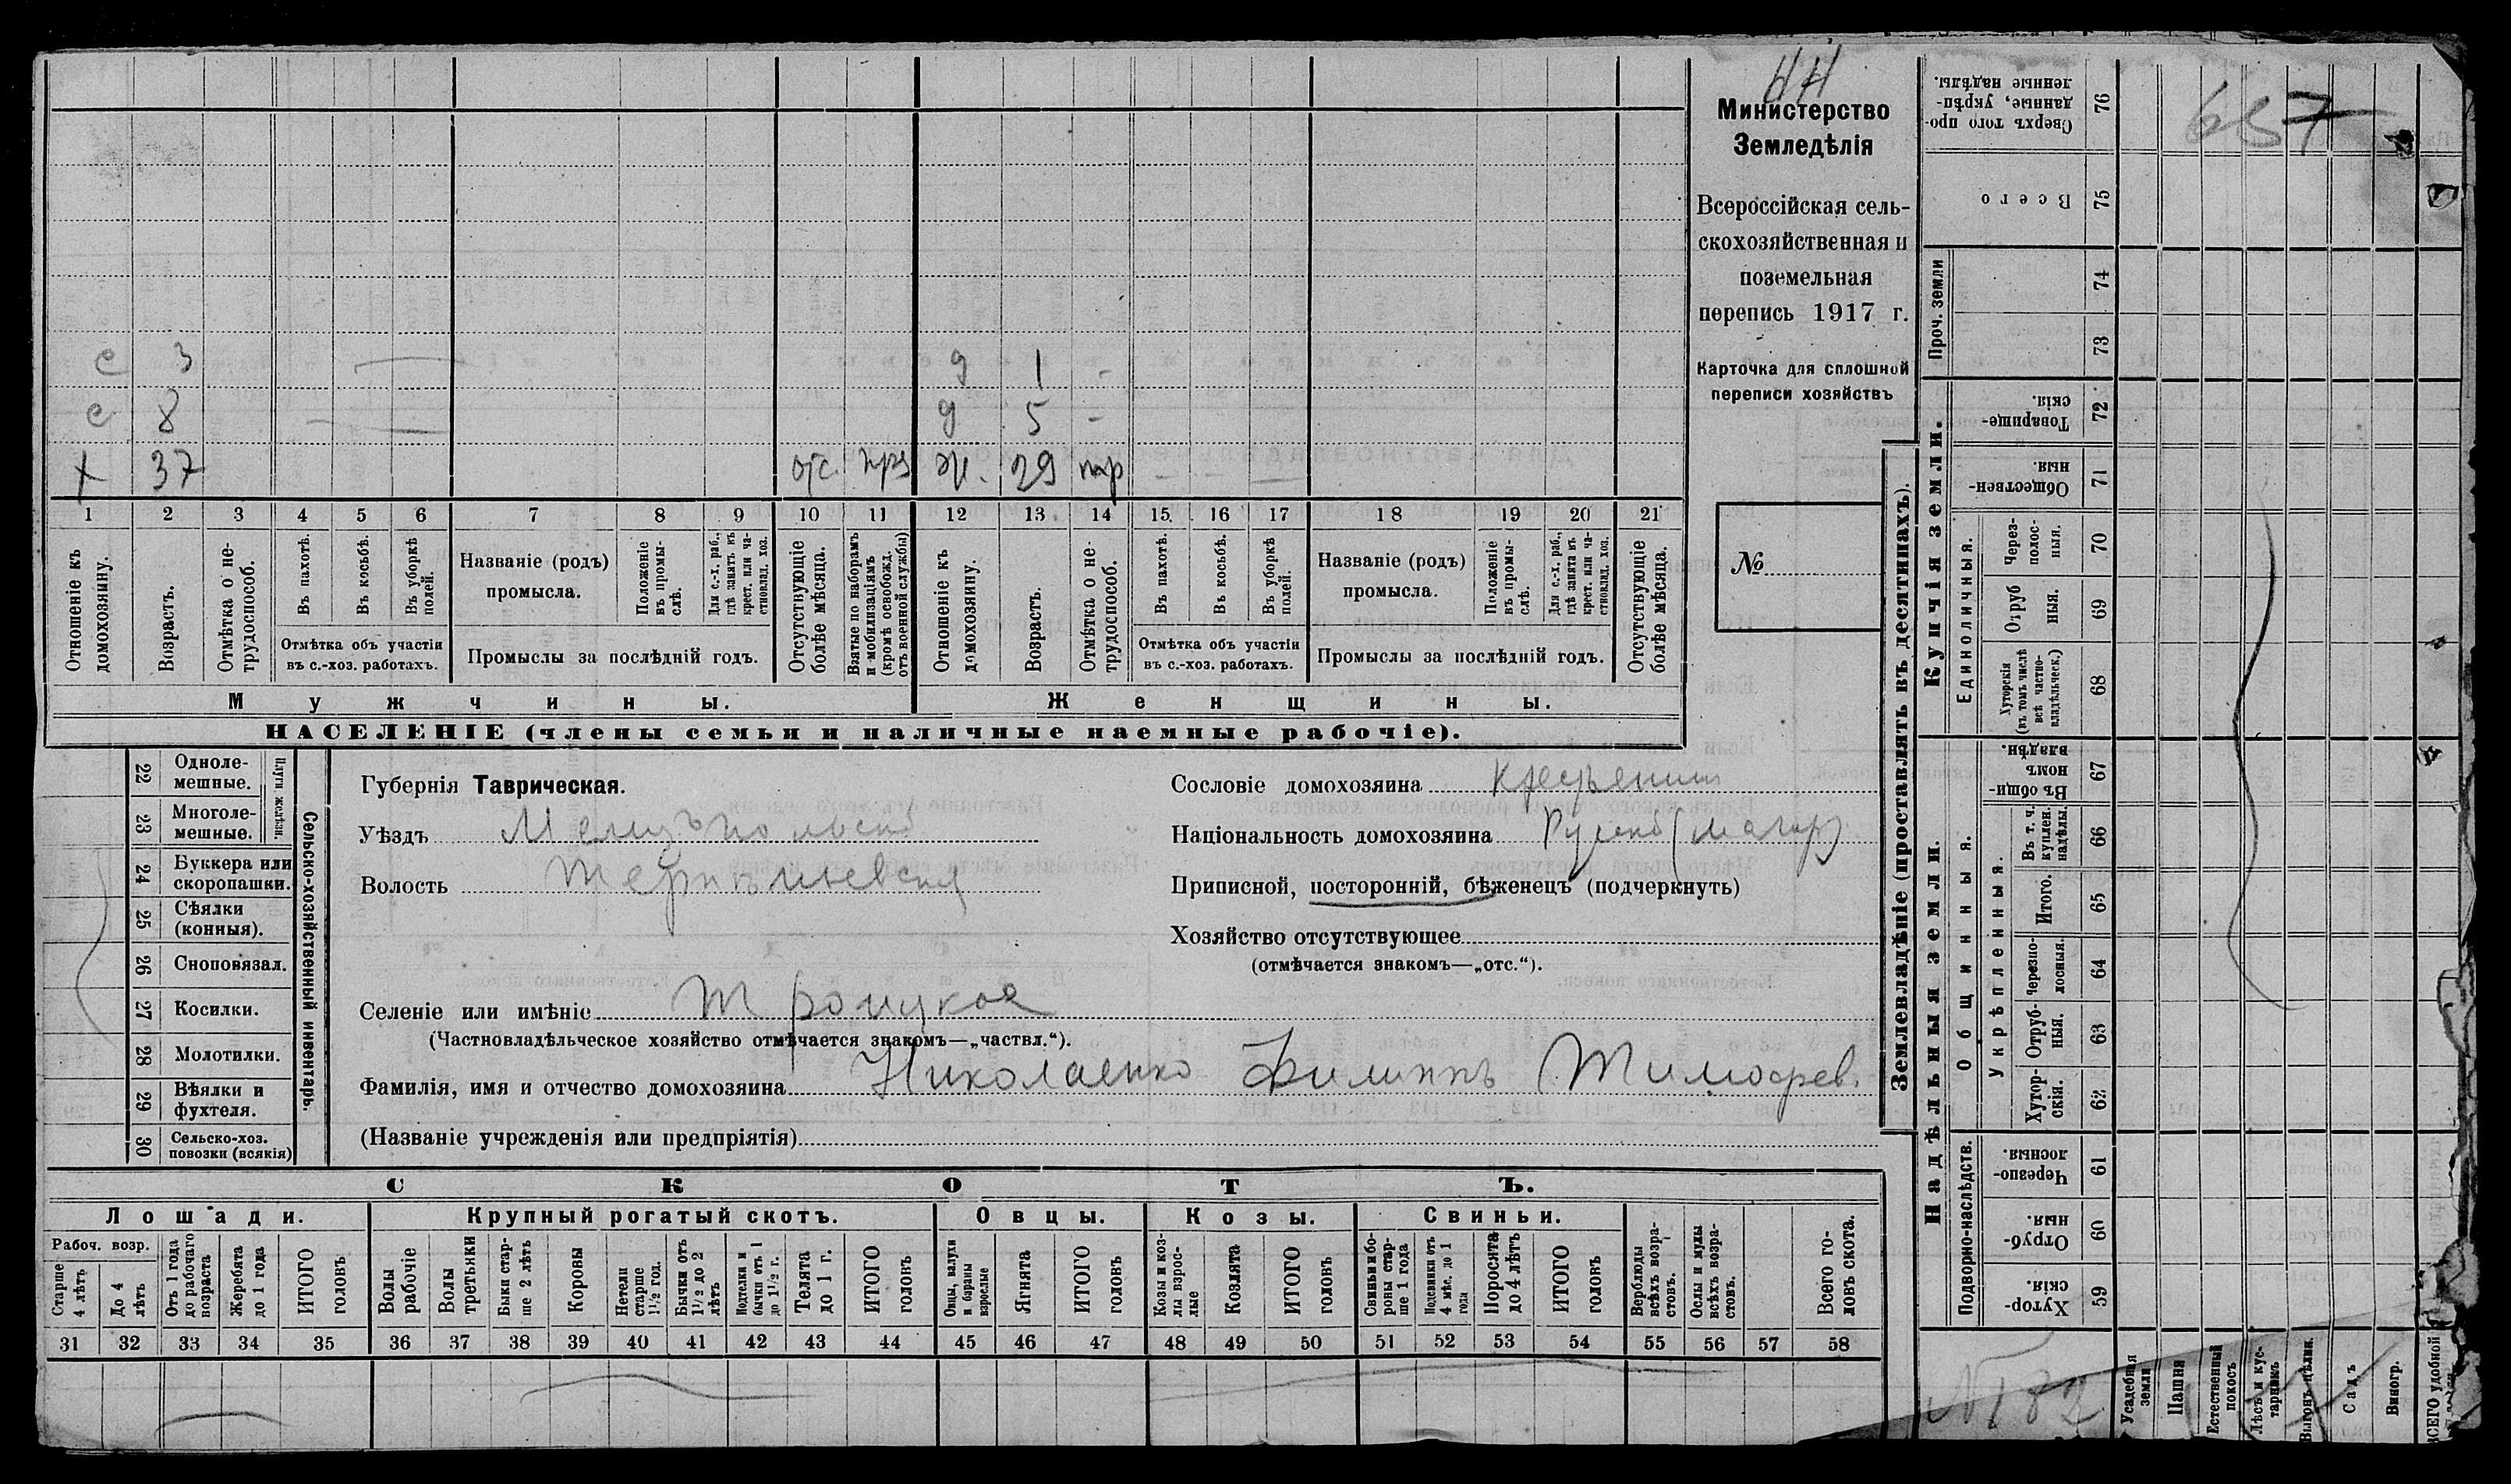 НН
Министерство
Земледѣлія
Всероссійская сель-
скохозяйственная и
поземельная
перепись 1917 г.
Карточка для сплошной
переписи хозяйствъ
№
с 3 — д 1 -
с 8 - — д 5 -
х 37 отс. ж. 29 - —
1 2 3 4 5 6 7 8 9 10 11 12 13 14 15 16 17 18 19 20 21
Отношеніе къ домохозяину.
Возрастъ.
Отмѣтка о не-трудоспособ.
Въ пахотѣ.
Въ косьбѣ.
Въ уборкѣ полей.
Отмѣтка объ участіи въ с.-хоз. работахъ.
Названіе (родъ) промысла.
Положеніе въ промы-слѣ.
Для с.-х. раб., гдѣ занятъ въ крест. или ча-стновлад. хоз.
Промыслы за послѣдній годъ.
Отсутствующіе болѣе мѣсяца.
Взятые по наборамъ и мобилизаціямъ (кромѣ освобожд. отъ военной службы)
Отношеніе къ домохозяину.
Возрастъ.
Отмѣтка о не-трудоспособ.
Въ пахотѣ.
Въ косьбѣ.
Въ уборкѣ полей.
Отмѣтка объ участіи въ с.-хоз. работахъ.
Названіе (родъ) промысла.
Положеніе въ промы-слѣ.
Для с.-х. раб., гдѣ занята въ крест. или ча-стновлад. хоз.
Промыслы за послѣдній годъ.
Отсутствующіе болѣе мѣсяца.
Мужчины. Женщины.
НАСЕЛЕНІЕ (члены семьи и наличные наемные рабочіе).
22 Одноле-мешные.
23 Многоле-мешные.
Плуги желѣзн.
24 Буккера или скоропашки.
25 Сѣялки (конныя).
26 Сноповязал.
27 Косилки.
28 Молотилки.
29 Вѣялки и фухтеля.
30 Сельско-хоз. повозки (всякія)
Сельско-хозяйственный инвентарь.
Губернія Таврическая.
Уѣздъ Мелитопольскій
Волость
Селеніе или имѣніе Троицкое
(Частновладѣльческое хозяйство отмѣчается знакомъ—„частвл.“).
Фамилія, имя и отчество домохозяина Николаенко Филиппъ Тимофеев.
(Названіе учрежденія или предпріятія)
Сословіе домохозяина Крестьянин
Національность домохозяина
Приписной, посторонній, бѣженецъ (подчеркнуть)
Хозяйство отсутствующее
(отмѣчается знакомъ—„отс.“).
СКОТЪ.
Лошади. Крупный рогатый скотъ. Овцы. Козы. Свиньи.
Рабоч. возр.
Старше 4 лѣтъ
До 4 лѣтъ
Отъ 1 года до рабочаго возраста
Жеребята до 1 года
ИТОГО головъ
Волы рабочіе
Волы третьяки
Быки стар-ше 2 лѣтъ
Коровы
Нетели старше 1½ год.
Бычки отъ 1½ до 2 лѣтъ
Подтелки и бычки отъ 1 до 1½ г.
Телята до 1 г.
ИТОГО головъ
Овцы, валухи и бараны взрослые
Ягнята
ИТОГО головъ
Козы и коз-лы взрос-лые
Козлята
ИТОГО головъ
Свиньи и бо-ровы стар-ше 1 года
Подсвинки отъ 4 мѣс. до 1 года
Поросята до 4 лѣтъ
ИТОГО головъ
Верблюды всѣхъ возра-стовъ.
Ослы и мулы всѣхъ возра-стовъ.
Всего го-ловъ скота.
31 32 33 34 35 36 37 38 39 40 41 42 43 44 45 46 47 48 49 50 51 52 53 54 55 56 57 58
Землевладѣніе (проставлять въ десятинахъ).
Купчія земли.
Надѣльныя земли.
657
Сверхъ того про-данные, укрѣп-ленные надѣлы. 76
Всего 75
Проч. земли 74
73
Товарище-скія. 72
Обществен-ныя. 71
Единоличныя.
Через-полос-ныя. 70
Отруб ныя. 69
Хуторскія (въ томъ числѣ всѣ частно-владѣльческ.) 68
Въ общи-номъ владѣн. 67
Общинныя.
Укрѣпленныя.
Въ т. ч. куплен. надѣлы. 66
Итого. 65
Черезпо-лосныя. 64
Отруб-ныя. 63
Хутор-скія. 62
Подворно-наслѣдств.
Черезпо-лосныя. 61
Отруб-ныя. 60
Хутор-скія. 59
Усадебная земля
Пашня
Естественный покосъ
Лѣсъ и кус-тарникъ
Выгонъ цѣлин.
Садъ
Виногр.
ВСЕГО удобной
N 182